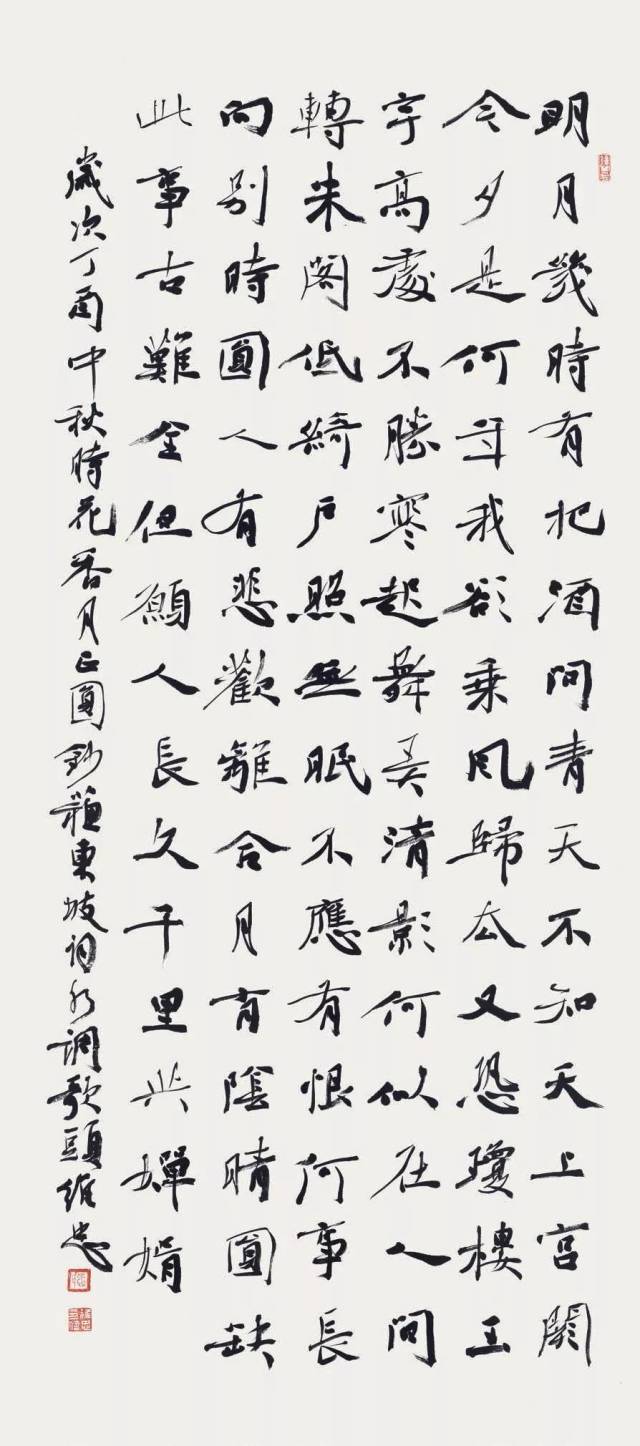 明月幾時有把酒問青天不知天上宮闕
今夕是何年我欲乘風歸去又恐瓊樓玉
宇高處不勝寒起舞弄清影何似在人間
轉朱閣低綺戶照無眠不應有恨何事長
向別時圓人有悲歡離合月有陰晴圓缺
此事古難全但願人長久千里共嬋娟
歲次丁酉中秋時花香月正圓鈔蘇東坡詞水調歌頭維忠